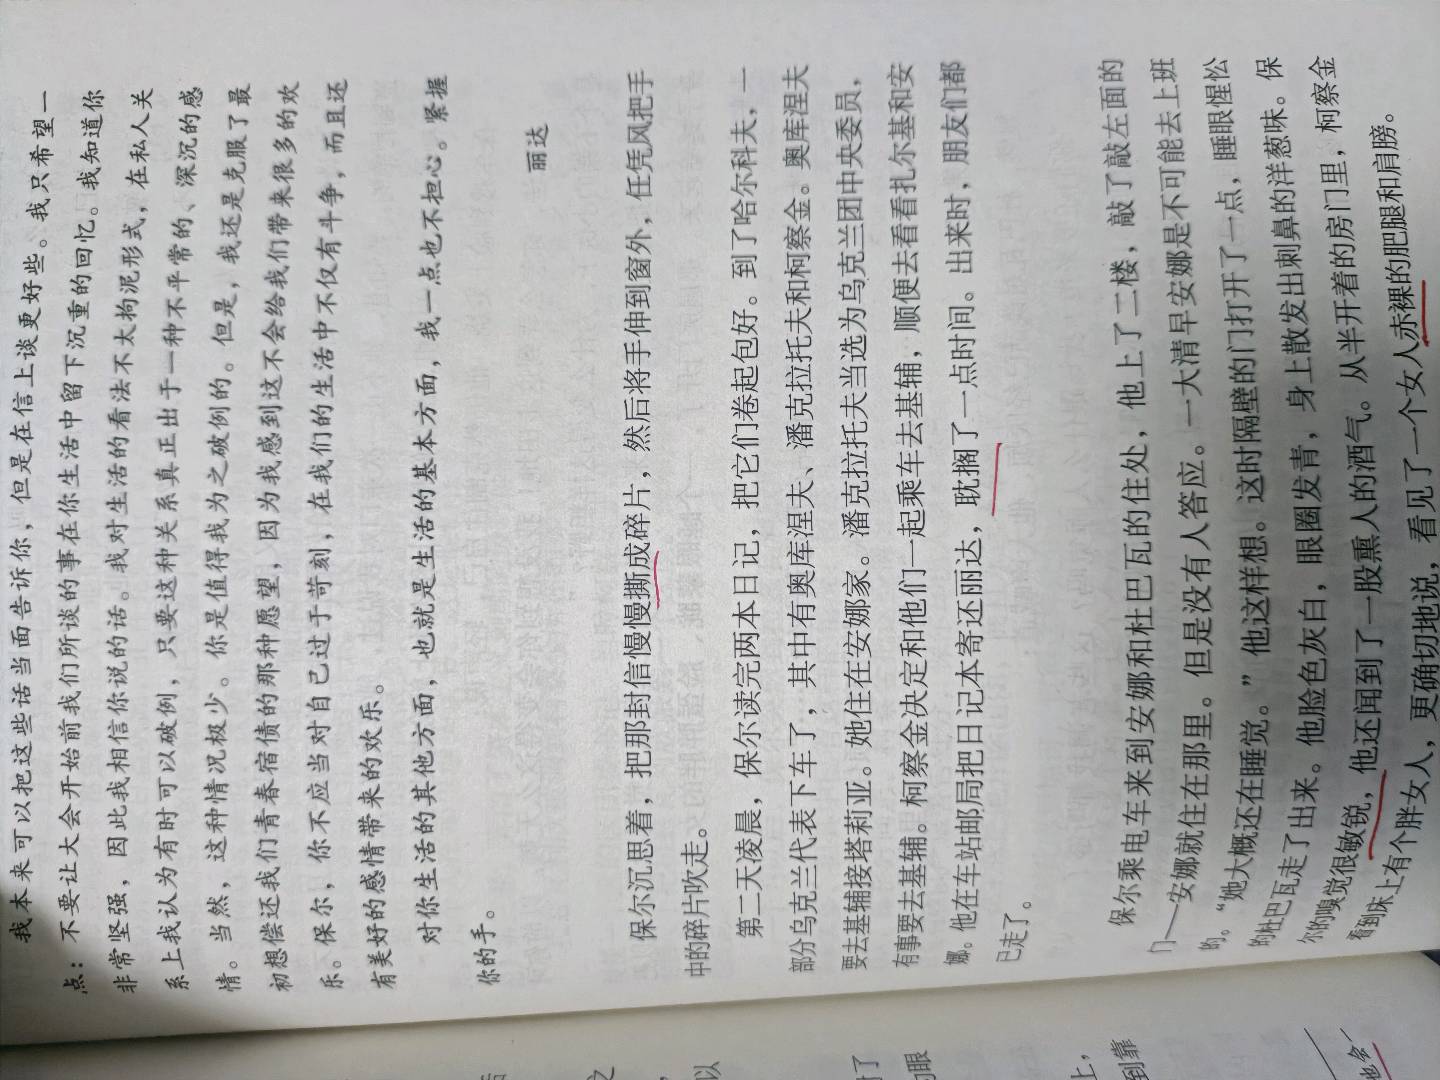 我本来可以把这些话当面告诉你，但是在信上谈更好些。我只希望一
点：不要让大会开始前我们所谈的事在你生活中留下沉重的回忆。我知道你
非常坚强，因此我相信你说的话。我对生活的看法不太拘泥形式，在私人关
系上我认为有时可以破例，只要这种关系真正出于一种不平常的、深沉的感
情。当然，这种情况极少。你是值得我为之破例的。但是，我还是克服了最
初想偿还我们青春宿债的那种愿望，因为我感到这不会给我们带来很多的欢
乐。保尔，你不应当对自己过于苛刻，在我们的生活中不仅有斗争，而且还
有美好的感情带来的欢乐。
对你生活的其他方面，也就是生活的基本方面，我一点也不担心。紧握
你的手。
丽达
保尔沉思着，把那封信慢慢撕成碎片，然后将手伸到窗外，任凭风把手
中的碎片吹走。
第二天凌晨，保尔读完两本日记，把它们卷起包好。到了哈尔科夫，一
部分乌克兰代表下车了，其中有奥库涅夫、潘克拉托夫和柯察金。奥库涅夫
要去基辅接塔莉亚。她住在安娜家。潘克拉托夫当选为乌克兰团中央委员，
有事要去基辅。柯察金决定和他们一起乘车去基辅，顺便去看看扎尔基和安
娜。他在车站邮局把日记本寄还丽达，耽搁了一点时间。出来时，朋友们都
已走了。
保尔乘电车来到安娜和杜巴瓦的住处，他上了二楼，敲了敲左面的
门——安娜就住在那里。但是没有人答应。一大清早安娜是不可能去上班
的。“她大概还在睡觉。”他这样想。这时隔壁的门打开了一点，睡眼惺忪
的杜巴瓦走了出来。他脸色灰白，眼圈发青，身上散发出刺鼻的洋葱味。保
尔的嗅觉很敏锐，他还闻到了一股熏人的酒气。从半开着的房门里，柯察金
看到床上有个胖女人，更确切地说，看见了一个女人赤裸的肥腿和肩膀。
之
以
了
的眼
上，
到靠